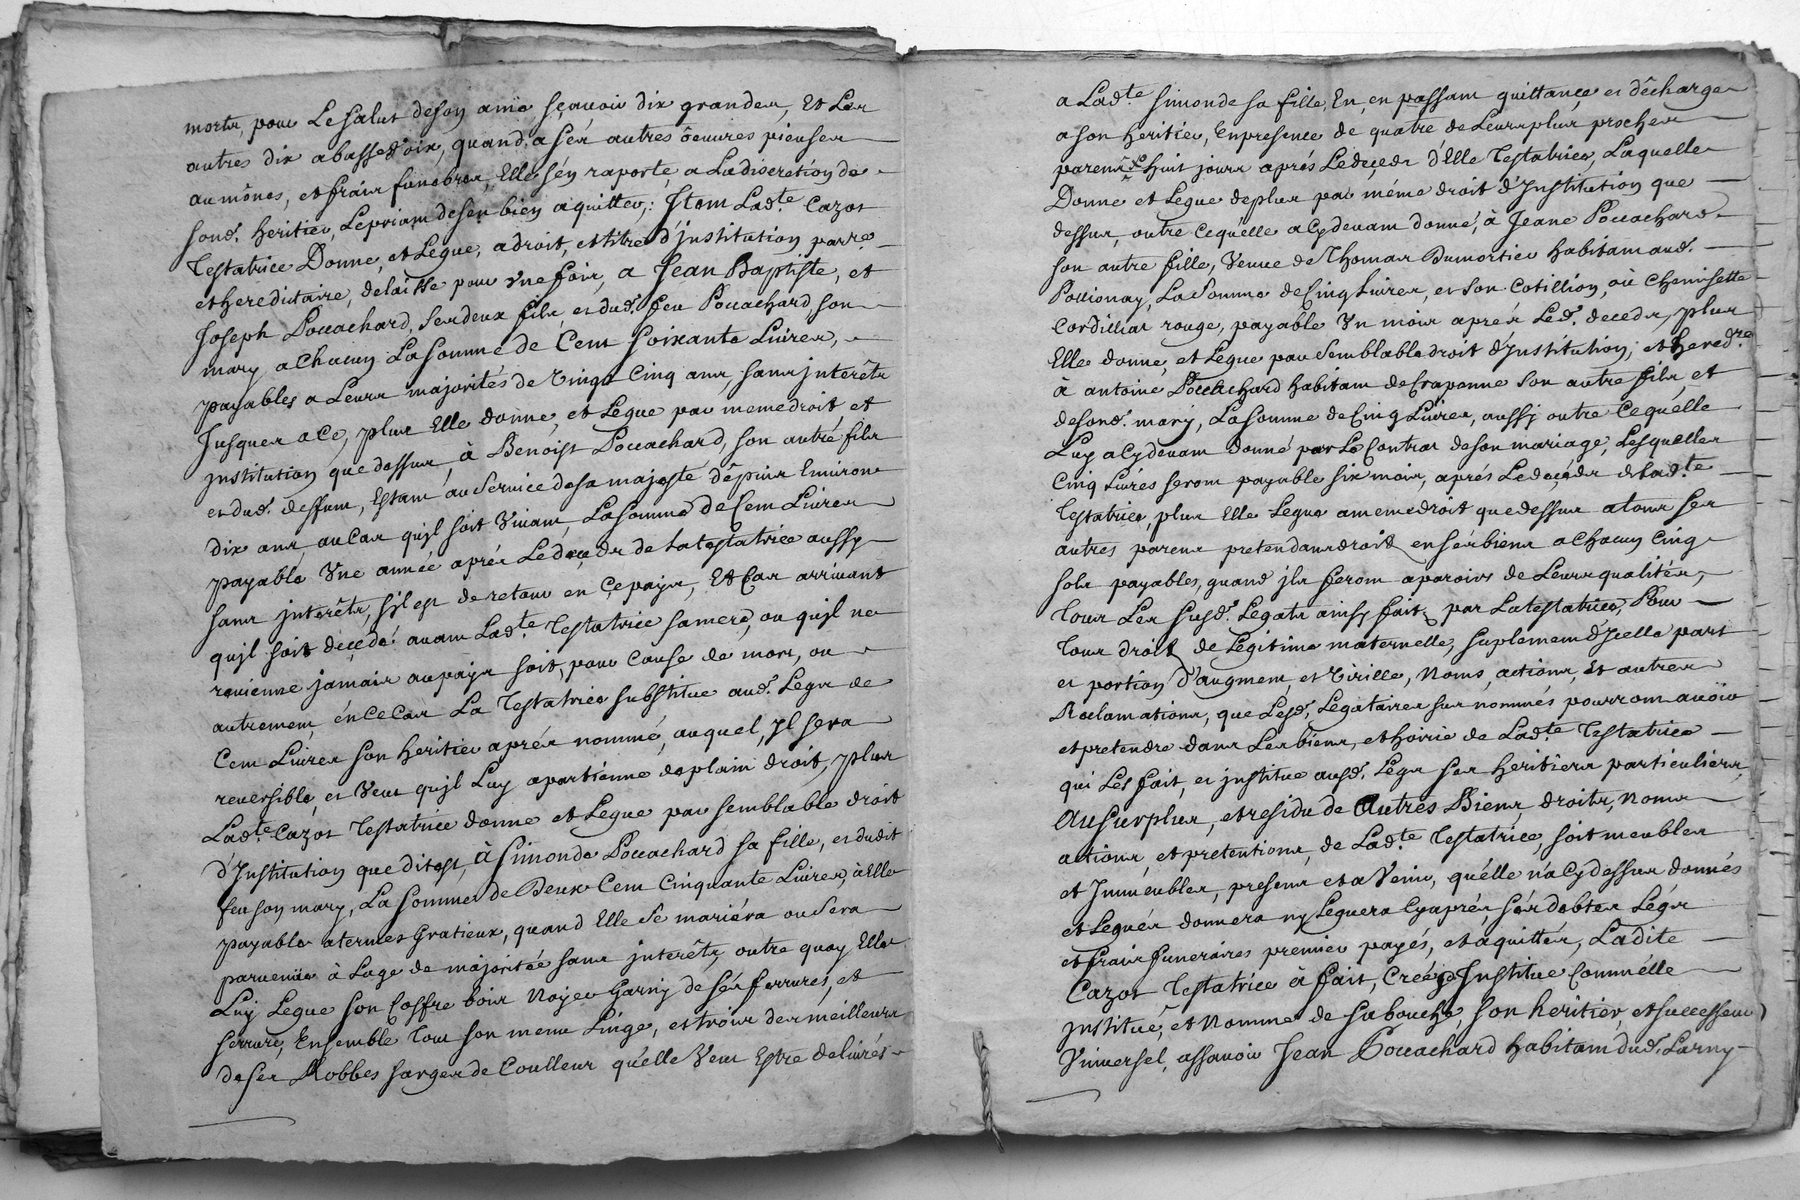 morts, pour Le salut de son ame sçavoir dix grandes, Et Les
autres dix a basse voix, quand a ses autres oeuvres pieuses
aumônes, et frais funebres, Elle s'en raporte a La discretion de
sond. heritier, Le priant de sen bien aquitter; Item Lad.te Cazot
Testatrice Donne, et Legue, a droit, et titre d'institution, parre
et hereditaire, delaisse pour une fois, a Jean Baptiste, et
Joseph Pouachard, ses deux fils et dud. feu Pouachard, son
mary a Chacun La somme de Cent soixante Livres,
payables a Leurs majorités de Vingt Cinq ans, sans interêts
Jusques a Ce, plus Elle donne, et Legue par meme droit et
institution que dessus, à Benoist Pouachard, son autre fils
et dud. deffunt, Estant au service de sa majesté dêpuis Environ
dix ans, au Cas quil soit Vivant, La somme de Cent Livres
payable Une année aprés Le deçeds de la testatrice aussy
sans interêts, s'il est de retour en Ce pays, Et Cas arrivant
quil soit deçedé avant Lad.te Testatrice sa mere, ou quil ne
revienne jamais au pays soit, pour Cause de mort, ou
autrement, én Ce Cas La Testatrice substitue aud. Legs de
Cent Livres son heritier aprés nommé, auquel, jl sera
reversible, et Veut quil Luy apartienne de plain droit, plus
Lad.te Cazot Testatrice donne et Legue par semblable droit
d'Institution que dit est, à Simonde Pouachard sa fille, et dudit
feu son mary, La somme de Deux Cent Cinquante Livres, à Elle
payable a termes Gratieux, quand Elle se mariéra ou sera
parvenüe à Lage de majoritée sans interêts, outre quoy Elle
Luy Legue son Coffre bois Noyer Garny de sés ferrures, et
serrure, Ensemble Tout son menu Linge, et trois des meilleurs
de ses Robbes sarges de Coulleur qu'elle Veut Estre delivrés
a Lad.te simonde sa fille, En en passant quittance et décharge
a son heritier, En presence de quatre de Leurs plus proches
parens huit jours aprés Le deçeds d'Elle Testatrice, Laquelle
Donne et Legue de plus par méme droit d'Institution que
dessus, outre Ce qu'elle a Cy devant donné, à Jeane Pouachard
son autre fille, Veuve de Thomas Dumortier habitant aud.
Pollionay, La somme de Cinq Livres, et son Cotillion, ou Chemisette
Cordilliat rouge, payable Un mois aprés Led. deceds, plus
Elle donne, et Legue par Semblable droit d'Institution, et hered.re
à antoine Pouachard habitant de Craponne son autre fils, et
de sond. mary, La somme de Cinq Livres, aussy outre Ce qu'elle
Luy a Cy devant donné par Le Contrat de son mariage, Lesquelles
Cinq Livres seront payable six mois, aprés Le deçeds de Lad.te
Testatrice, plus Elle Legue a meme droit que dessus a tous ses
autres parens pretendans droit en sés biens a Chacun Cinq
sols payables, quand jls feront aparoir de Leurs qualités,
Tous Les susd. Legats ainsy fait par La testatrice, Pour
Tous droit de Legitime maternelle, suplement d'Icelle part
et portion d'augment, et Virille, Noms, actions, Et autres
Reclamations, que Lesd. Légataires sus nommés pourront avoir
et pretendre dans Les biens, et hoirie de Lad.te Testatrice
qui Les fait, et institue ausd. Legs ses heritiers particuliers,
Au surplus, et residu de Autres Biens, droits, Noms
actions, et pretentions, de Lad.te Testatrice, soit meubles
et Immeubles, presens et a Venir, qu'elle n'a Cy dessus donnés
et Legués donnera ny Leguera Cy aprés, sés debtes Légs
et frais funeraires premier payés, et aquittés, Ladite
Cazot Testatrice à fait, Créé, et Institue Comme elle
institue, et Nomme de sa bouche, son heritier, et successeur
Universel, assavoir Jean Pouachard habitant dud. Larny